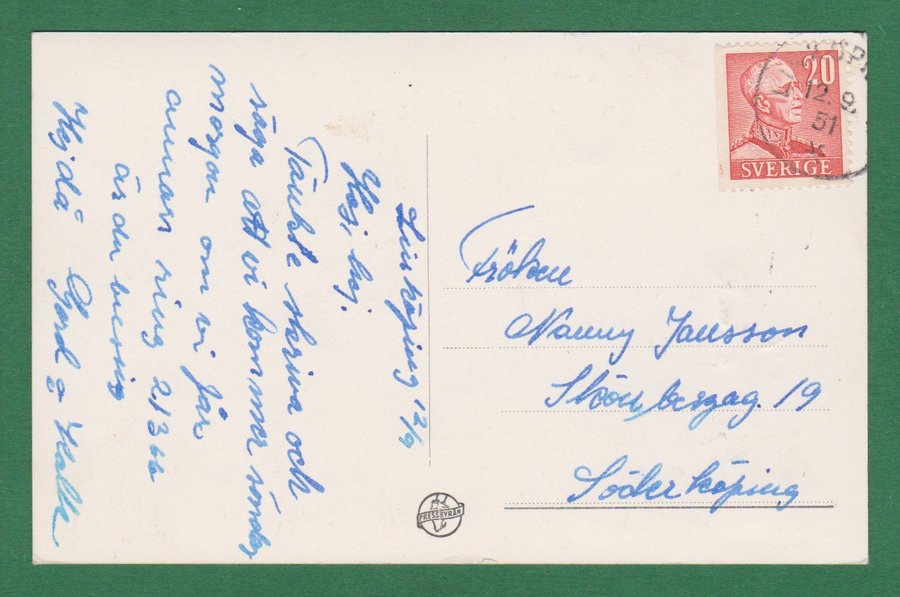 Linköping 12/9
Hej, hej.
Tänkte skriva och
säga att vi kommer söndag
morgon om vi får
annars ring 21366
är du bussig
Hejdå Gord o Kalle
20
SVERIGE
12. 9.
51
Fröken
Nanny Jansson
Skönbergag. 19
Söderköping
PRESSBYRÅN